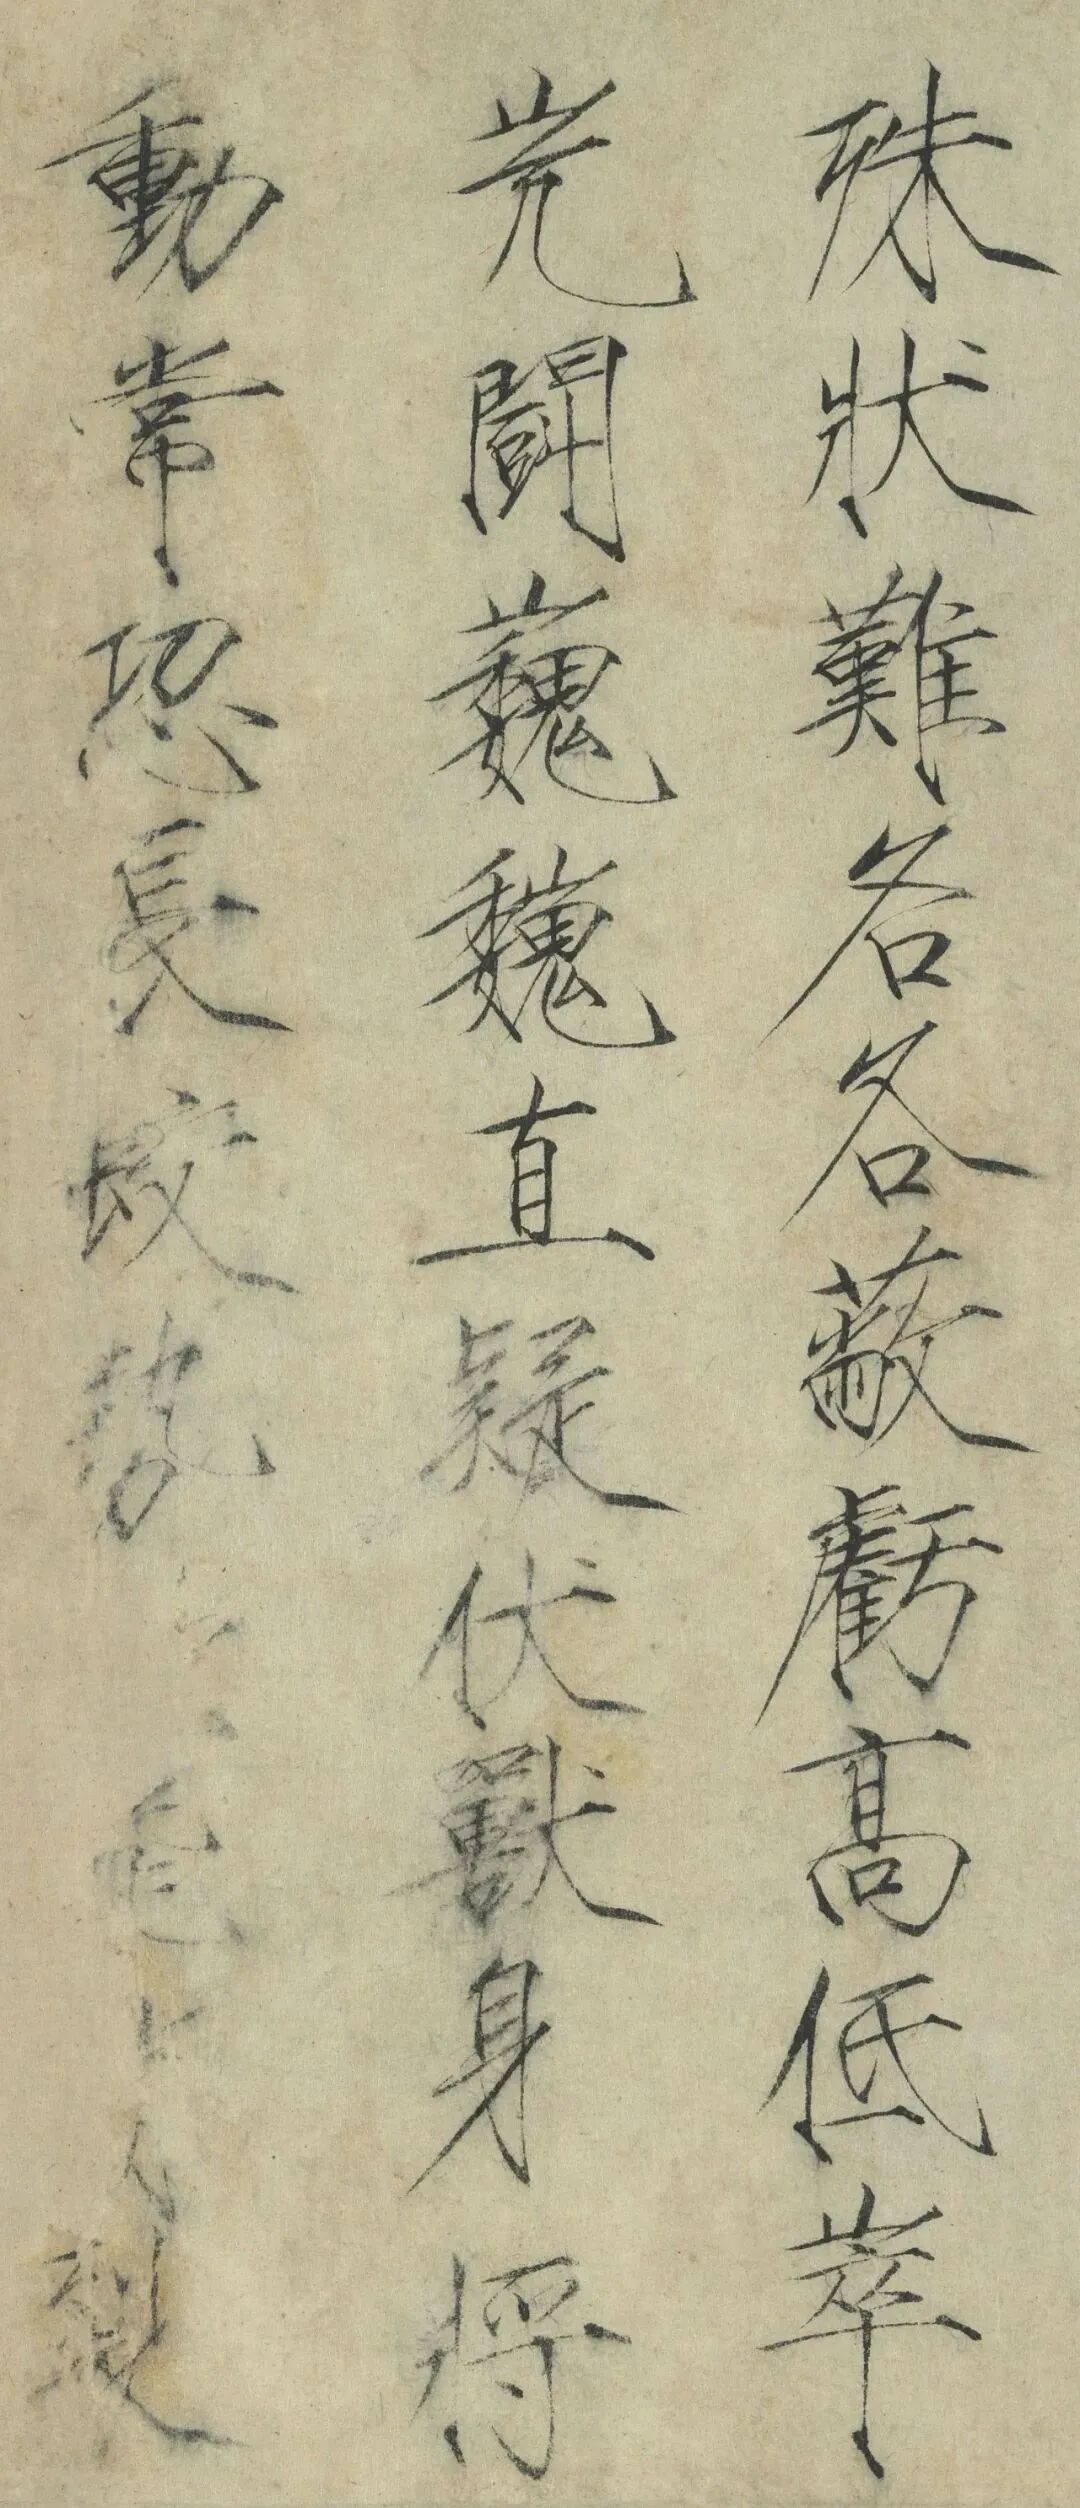 殊狀難名各蔽虧高低崒
屼鬭巍巍直疑伏獸身將
動常恐長蛟勢